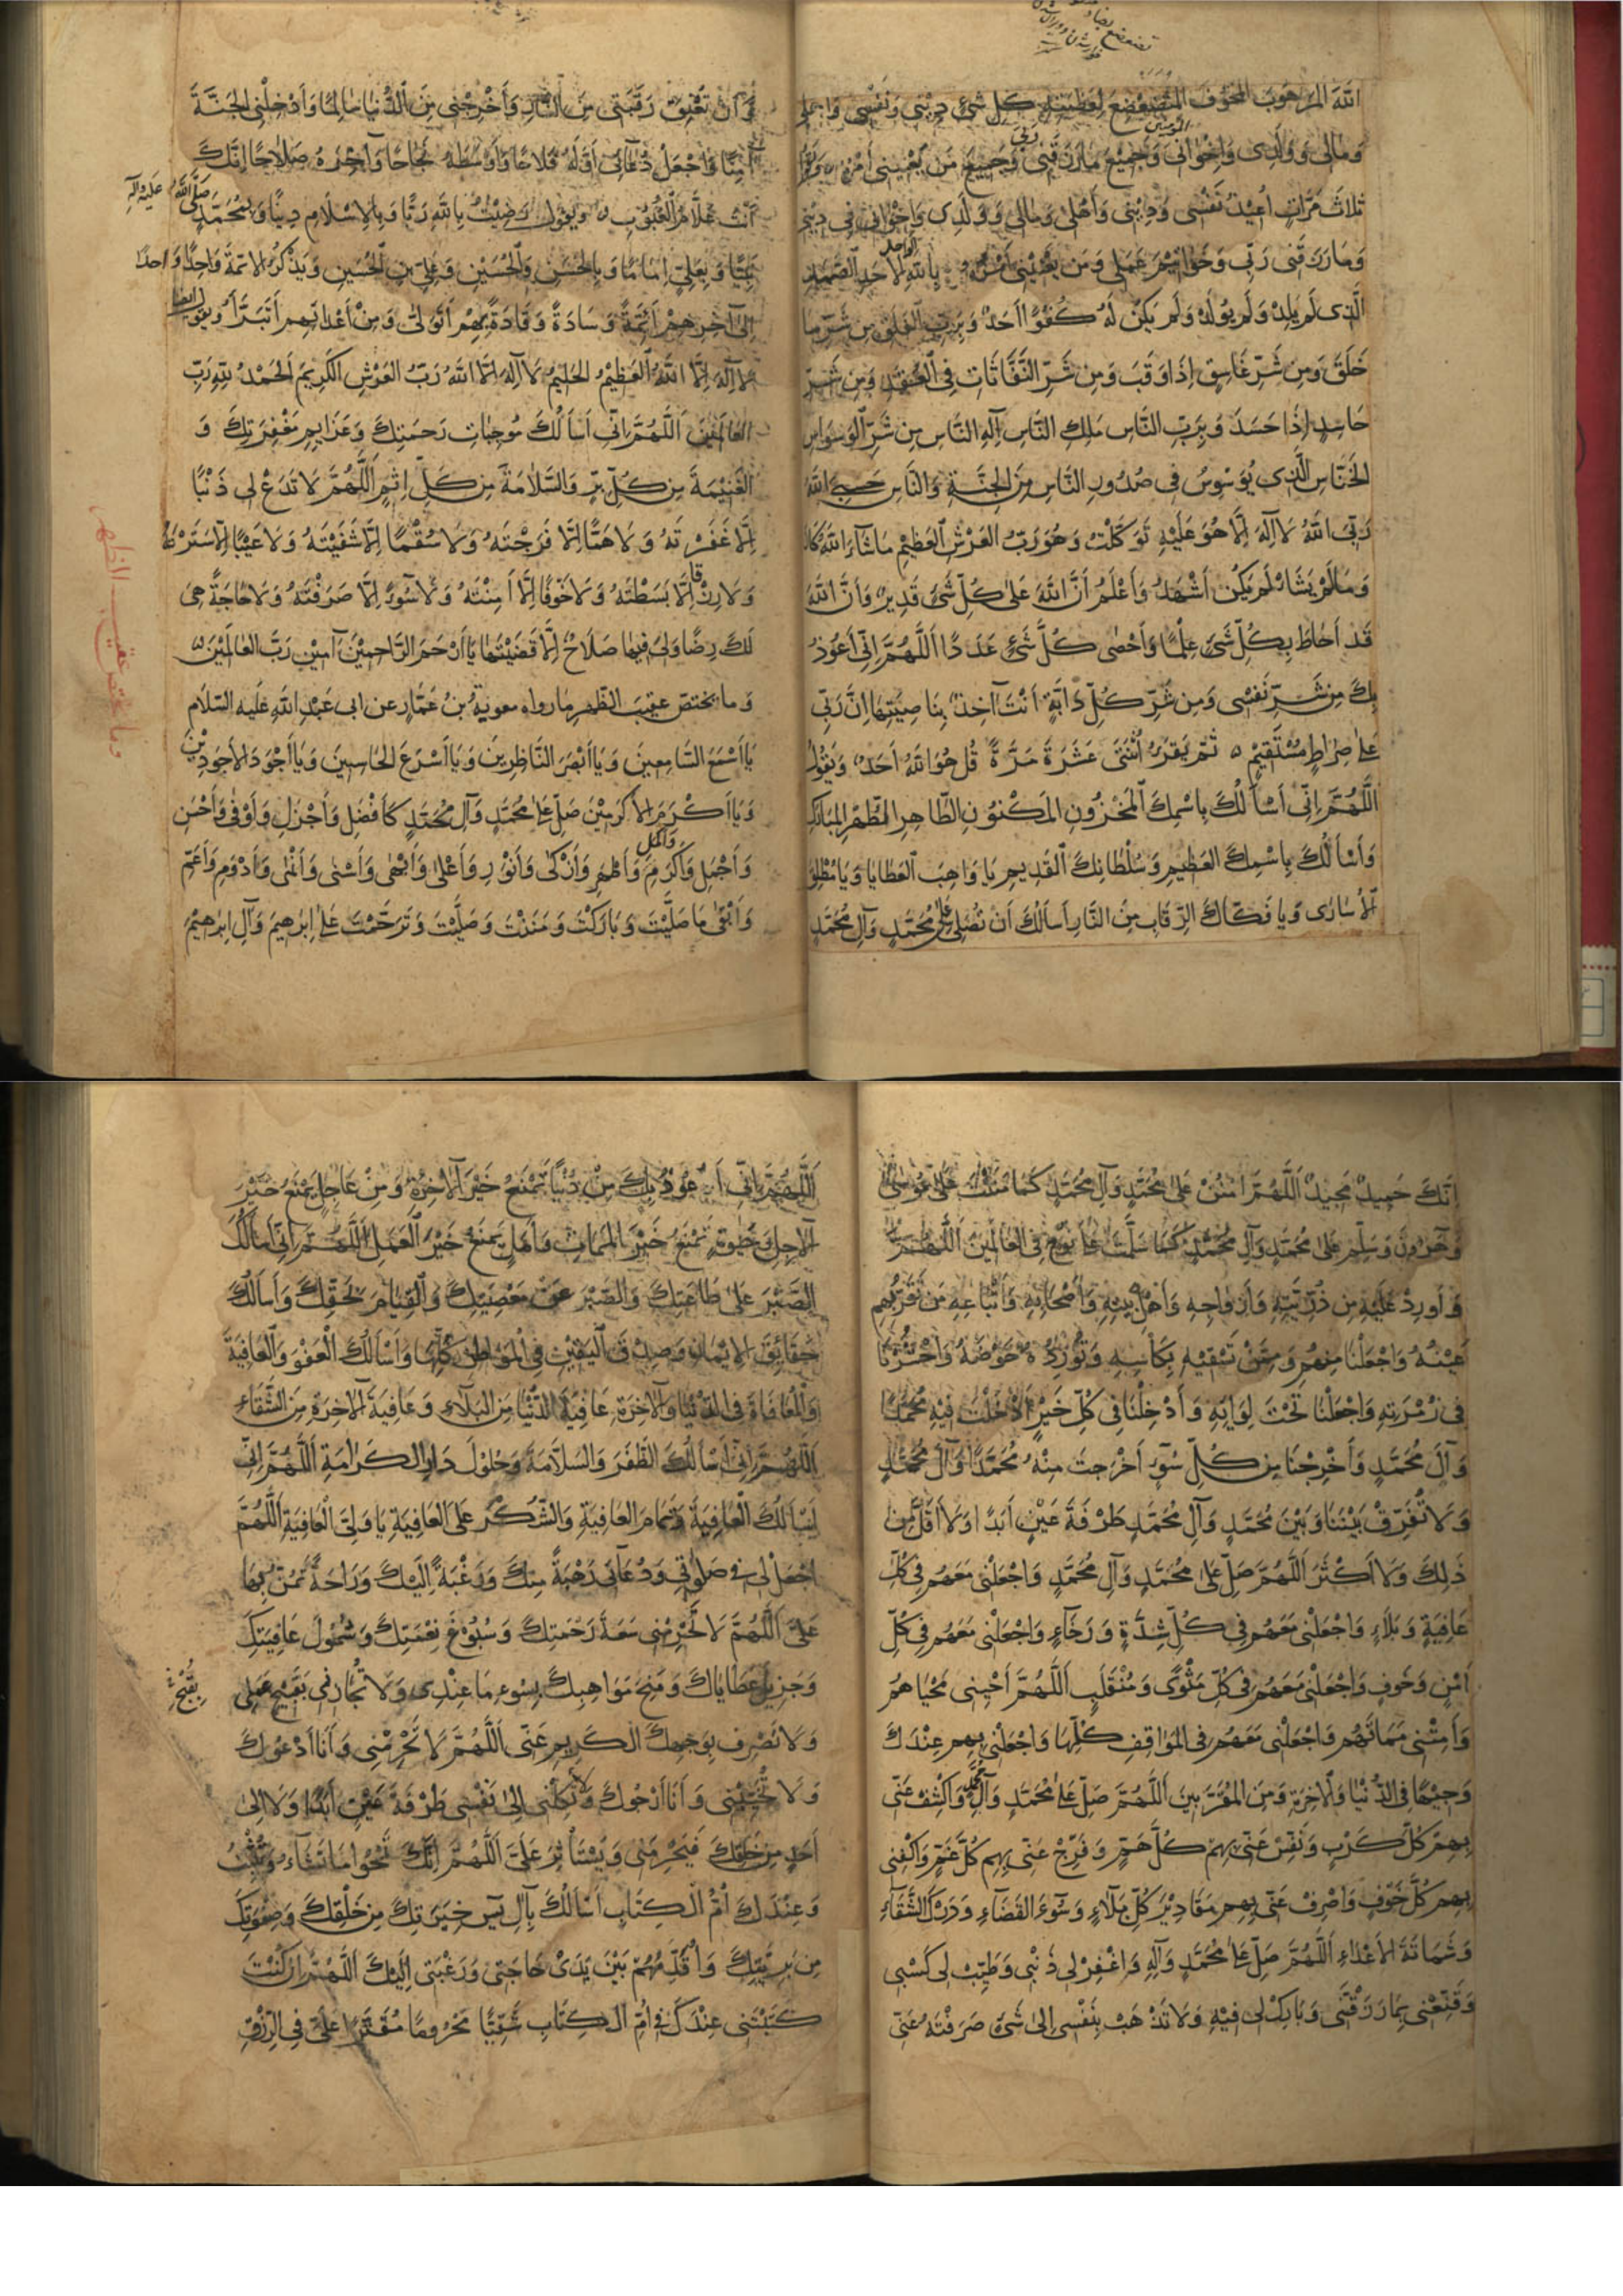 الله المرهوب المخوف المتضعضع لعظمته كل شيء ديني ونفسي واهلي
ومالي وولدي واخواني المؤمنين وجميع ما رزقني ربي وجميع من يعنيني امره ويقول
ثلاث مرات اعيذ نفسي وديني واهلي ومالي وولدي واخواني في ديني
وما رزقني ربي وخواتيم عملي ومن يعنيني امره بالله الواحد الاحد الصمد
الذي لم يلد ولم يولد ولم يكن له كفوا احد وبرب الفلق من شر ما
خلق ومن شر غاسق اذا وقب ومن شر النفاثات في العقد ومن شر
حاسد اذا حسد وبرب الناس ملك الناس اله الناس من شر الوسواس
الخناس الذي يوسوس في صدور الناس من الجنة والناس حسبي الله
ربي الله لا اله الا هو عليه توكلت وهو رب العرش العظيم ما شاء الله كان
وما لم يشا لم يكن اشهد واعلم ان الله على كل شيء قدير وان الله
قد احاط بكل شيء علما واحصى كل شيء عددا اللهم اني اعوذ
بك من شر نفسي ومن شر كل دابة انت آخذ بناصيتها ان ربي
على صراط مستقيم ثم يقرء اثنتي عشرة مرة قل هو الله احد ويقول
اللهم اني اسالك باسمك المخزون المكنون الطاهر المطهر المبارك
واسالك باسمك العظيم وسلطانك القديم يا واهب العطايا ويا مطلق
الاسارى ويا فكاك الرقاب من النار اسالك ان تصلي على محمد وآل محمد
وان تعتق رقبتي من النار واخرجني من الدنيا سالما وادخلني الجنة
آمنا واجعل دعائي اوله فلاحا واوسطه نجاحا وآخره صلاحا انك
انت علام الغيوب ويقول رضيت بالله ربا وبالاسلام دينا وبمحمد صلى الله عليه وآله
نبيا وبعلي اماما وبالحسن والحسين وعلي بن الحسين ويذكر الائمة واحدا واحدا
الى آخرهم ائمة وسادة وقادة بهم اتولى ومن اعدائهم اتبرا ويقول ايضا
لا اله الا الله العظيم الحليم لا اله الا الله رب العرش الكريم الحمد لله رب
العالمين اللهم اني اسالك موجبات رحمتك وعزايم مغفرتك و
الغنيمة من كل بر والسلامة من كل اثم اللهم لا تدع لي ذنبا
الا غفرته ولا هما الا فرجته ولا سقما الا شفيته ولا عيبا الا سترته
ولا رزقا الا بسطته ولا خوفا الا امنته ولا سوءا الا صرفته ولا حاجة هي
لك رضا ولي فيها صلاح الا قضيتها يا ارحم الراحمين آمين رب العالمين
وما يختص عقيب الظهر ما رواه معوية بن عمار عن ابي عبد الله عليه السلام
يا اسمع السامعين ويا ابصر الناظرين ويا اسرع الحاسبين ويا اجود الاجودين
ويا اكرم الاكرمين صل على محمد وآل محمد كافضل واجزل واوفى واحسن
واجمل واكمل واكرم واطهر وازكى وانور واعلى وابهى واسنى وانمى وادوم واعم
وابقى ما صليت وباركت ومننت وصليت وترحمت على ابرهيم وآل ابرهيم
وما يختص عقيب الظهر
انك حميد مجيد اللهم امنن على محمد وآل محمد كما مننت على موسى
وهرون وسلم على محمد وآل محمد كما سلمت على نوح في العالمين اللهم
واورد عليه من ذريته وازواجه واهل بيته واصحابه واتباعه من تقر بهم
عينه واجعلنا منهم وممن تسقيه بكاسه وتورده حوضه واحشرنا
في زمرته واجعلنا تحت لوائه وادخلنا في كل خير ادخلت فيه محمدا
وآل محمد واخرجنا من كل سوء اخرجت منه محمدا وآل محمد
ولا تفرق بيننا وبين محمد وآل محمد طرفة عين ابدا ولا اقل من
ذلك ولا اكثر اللهم صل على محمد وآل محمد واجعلني معهم في كل
عافية وبلاء واجعلني معهم في كل شدة ورخاء واجعلني معهم في كل
امن وخوف واجعلني معهم في كل مثوى ومنقلب اللهم احيني محياهم
وامتني مماتهم واجعلني معهم في المواقف كلها واجعلني بهم عندك
وجيها في الدنيا والاخرة ومن المقربين اللهم صل على محمد وآل محمد واكشف عني
بهم كل كرب ونفس عني بهم كل هم وفرج عني بهم كل غم واكفني
بهم كل خوف واصرف عني بهم مقادير كل بلاء وسوء القضاء ودرك الشقاء
وشماتة الاعداء اللهم صل على محمد وآله واغفر لي ذنبي وطيب لي كسبي
وقنعني بما رزقتني وبارك لي فيه ولا تذهب بنفسي الى شيء صرفته عني
اللهم اني اعوذ بك من دنيا تمنع خير الاخرة ومن عاجل يمنع خير
الاجل وحيوة تمنع خير الممات وامل يمنع خير العمل اللهم اني اسالك
الصبر على طاعتك والصبر عن معصيتك والقيام بحقك واسالك
حقائق الايمان وصدق اليقين في المواطن كلها واسالك العفو والعافية
والمعافاة في الدنيا والاخرة عافية الدنيا من البلاء وعافية الاخرة من الشقاء
اللهم اني اسالك الظفر والسلامة وحلول دار الكرامة اللهم اني
اسالك العافية وتمام العافية والشكر على العافية يا ولي العافية اللهم
اجعل لي في صلوتي ودعائي رهبة منك ورغبة اليك وراحة تمن بها
علي اللهم لا تحرمني سعة رحمتك وسبوغ نعمتك وشمول عافيتك
وجزيل عطاياك ومنح مواهبك بسوء ما عندي ولا تجازني بقبيح عملي
بقبح
ولا تصرف بوجهك الكريم عني اللهم لا تحرمني وانا ادعوك
ولا تخيبني وانا ارجوك ولا تكلني الى نفسي طرفة عين ابدا ولا الى
احد من خلقك فيحرمني ويستاثر علي اللهم انك تمحوا ما تشاء وتثبت
وعندك ام الكتاب اسالك بآل يس خيرتك من خلقك وصفوتك
من بريتك واقدمهم بين يدي حاجتي ورغبتي اليك اللهم ان كنت
كتبتني عندك في ام الكتاب شقيا محروما مقترا علي في الرزق